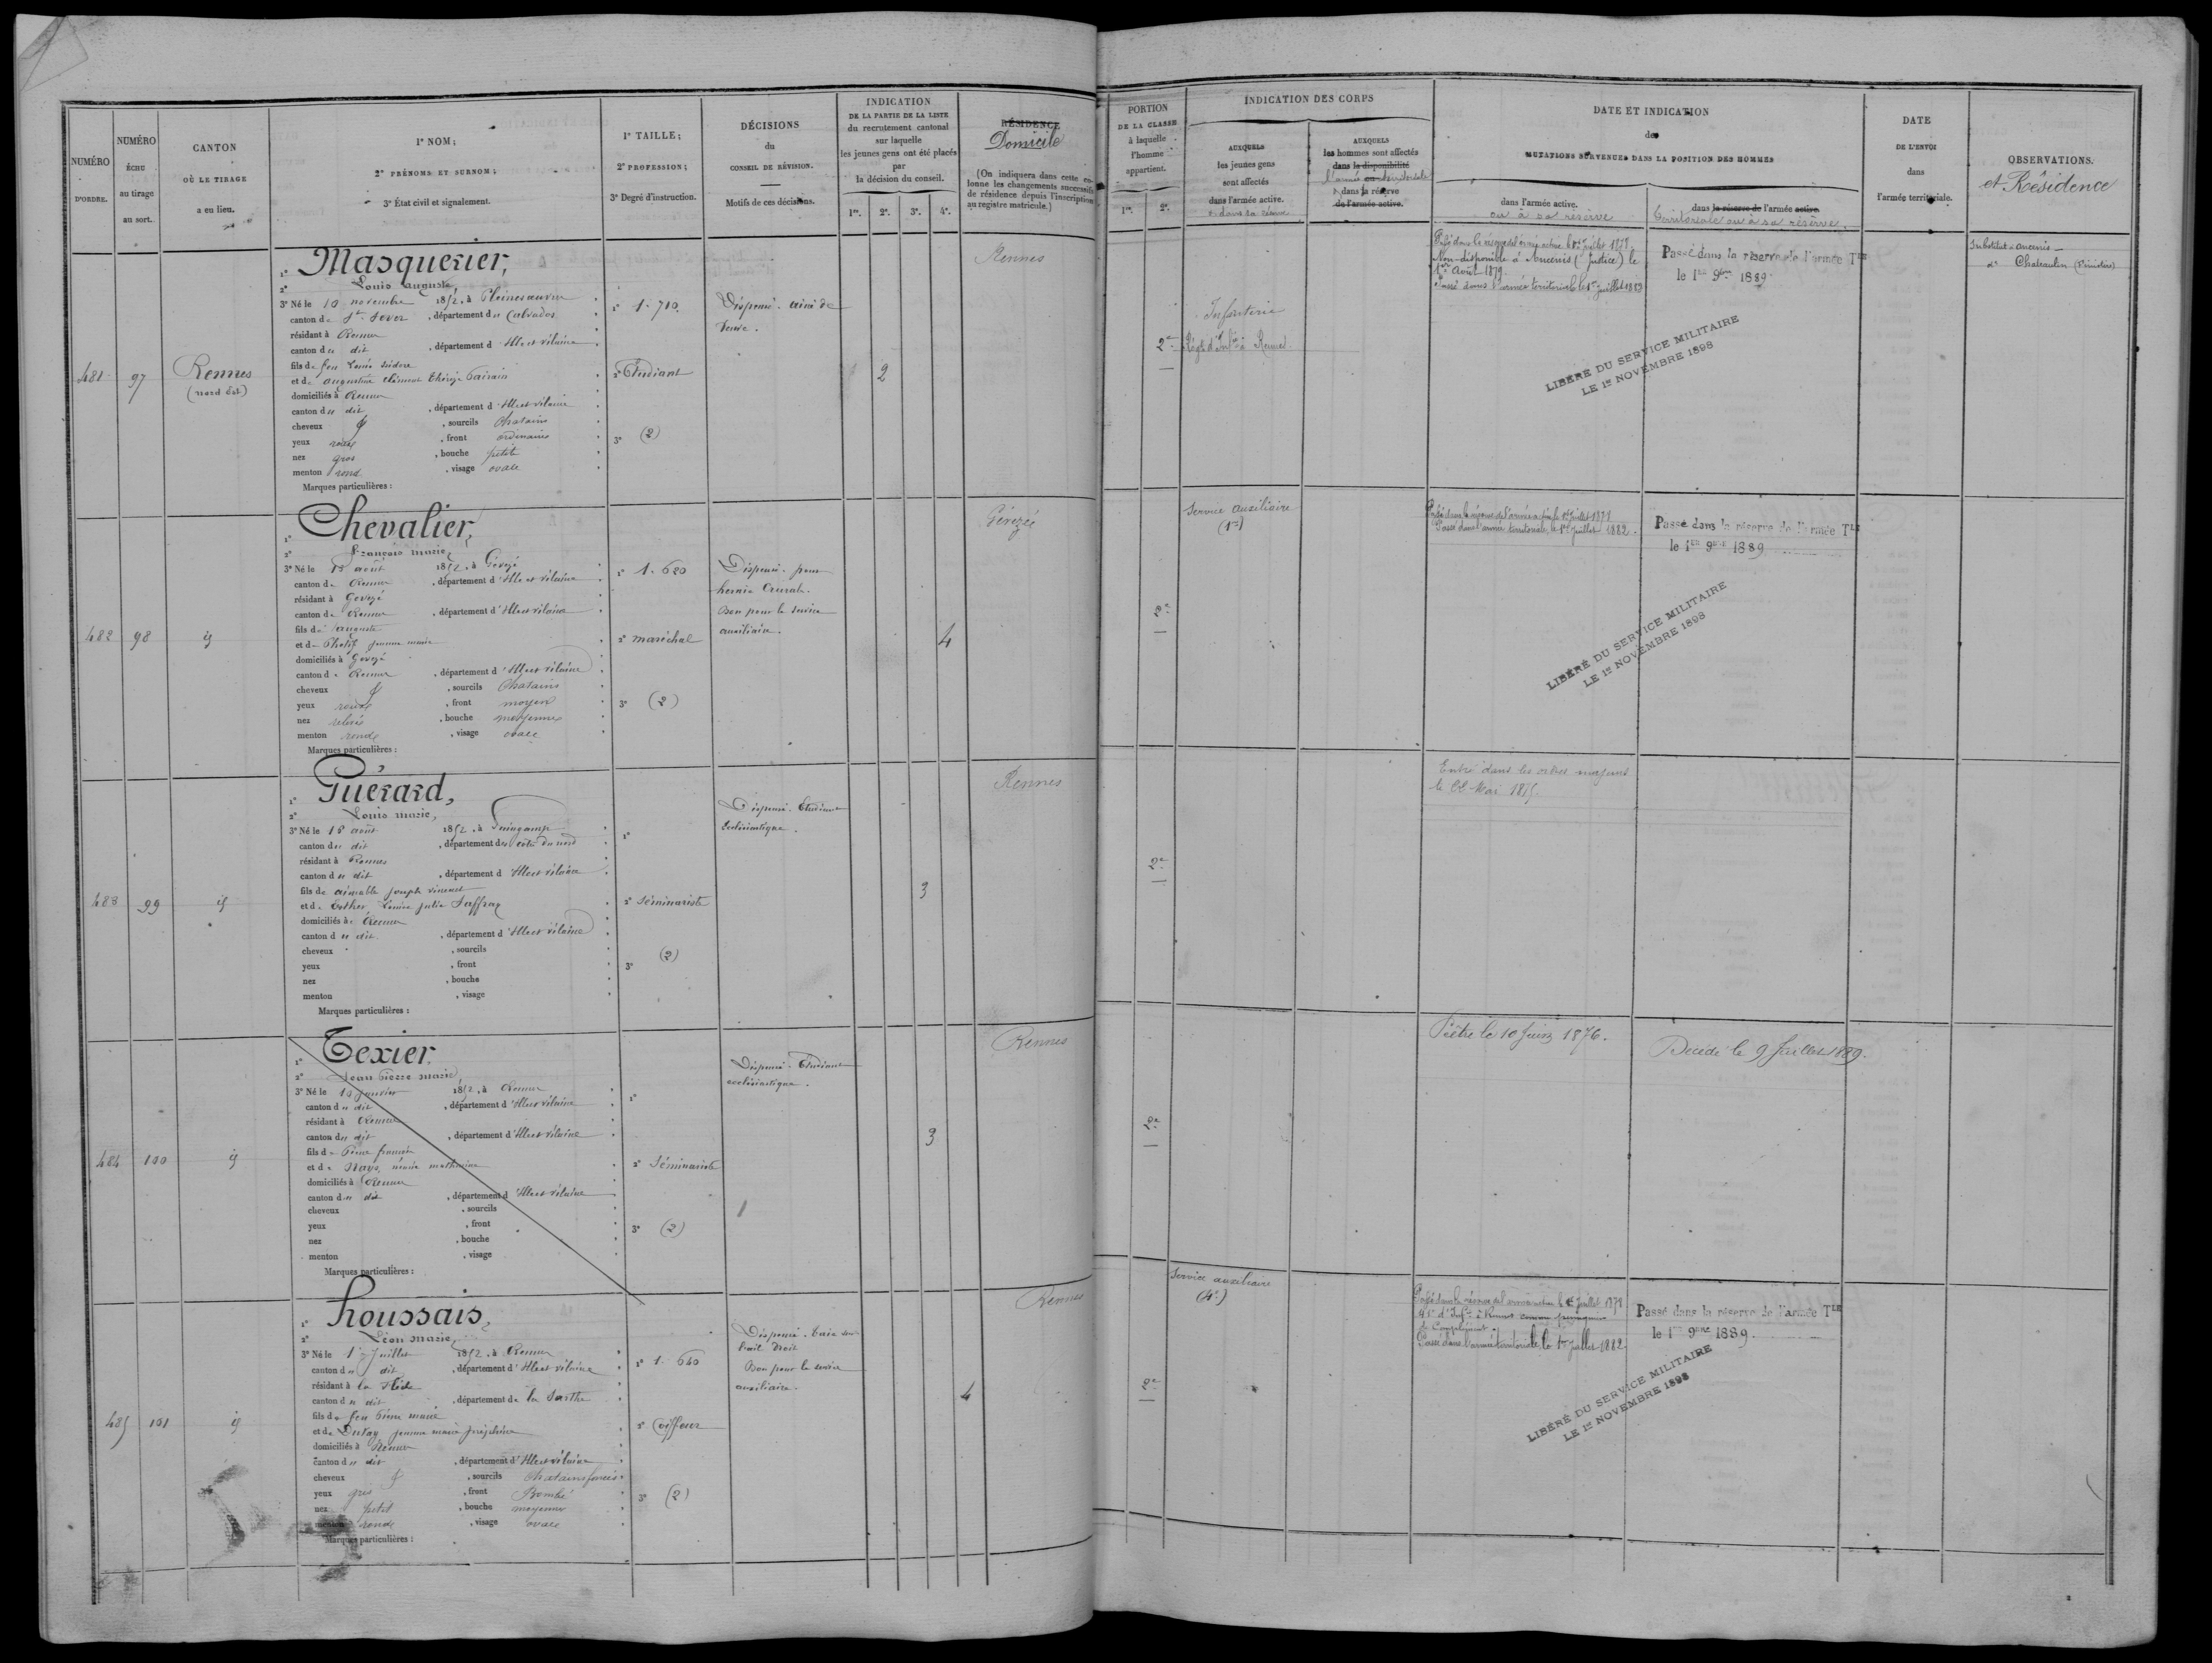 NUMÉRO
D'ORDRE.
NUMÉRO
ÉCHU
au tirage
au sort.
CANTON
OÙ LE TIRAGE
a eu lieu.
1° NOM;
2° PRÉNOMS ET SURNOM;
3° État civil et signalement.
1° TAILLE;
2° PROFESSION;
3° Degré d'instruction.
DÉCISIONS
du
CONSEIL DE RÉVISION.
Motifs de ces décisions.
INDICATION
DE LA PARTIE DE LA LISTE
du recrutement cantonal
sur laquelle
les jeunes gens ont été placés
par
la décision du conseil.
1re. 2e. 3e. 4e.
RÉSIDENCE
Domicile
(On indiquera dans cette co-
lonne les changements successifs
de résidence depuis l'inscription
au registre matricule.)
PORTION
DE LA CLASSE
à laquelle
l'homme
appartient.
1re. 2e.
INDICATION DES CORPS
AUXQUELS
les jeunes gens
sont affectés
dans l'armée active.
dans sa réserve
AUXQUELS
les hommes sont affectés
dans la disponibilité
dans la réserve
de l'armée active.
DATE ET INDICATION
des
MUTATIONS SURVENUES DANS LA POSITION DES HOMMES
dans l'armée active.
ou à sa réserve
dans la réserve de l'armée active.
territoriale ou à sa réserve.
DATE
DE L'ENVOI
dans
l'armée territoriale.
OBSERVATIONS.
et Résidence
481
97
Rennes
(nord Est)
1° Masquerier,
2° Louis Auguste,
3° Né le 10 novembre 1852, à
canton de St Sever, département du Calvados
résidant à Rennes
canton du dit, département d'Ille et Vilaine
fils de feu Louis Isidore
et de Augustine Thérèse
domiciliés à Rennes
canton du dit, département d'Ille et Vilaine
cheveux, sourcils Chatains
yeux roux, front ordinaire
nez gros, bouche petite
menton rond, visage ovale
Marques particulières :
1° 1. 710.
2° Etudiant
3° (2)
Dispensé. ainé de
veuve.
2
Rennes
2e
Infanterie
Régt d'Infie à Rennes.
Passé dans la réserve de l'armée active le 1er juillet 1878.
Non-disponible à Ancenis (Justice) le
1er Août 1879.
Passé dans l'armée territoriale le 1er juillet 1883
Passé dans la réserve de l'armée Tle
le 1er 9bre 1889
LIBÉRÉ DU SERVICE MILITAIRE
LE 1er NOVEMBRE 1898
Substitut à Ancenis
do Chateaulin (Finistère)
482
98
id
1° Chevalier,
2° François Marie,
3° Né le août 1852, à Gévezé
canton de Rennes, département d'Ille et Vilaine
résidant à Gévezé
canton de Rennes, département d'Ille et Vilaine
fils de Auguste
et de Jeanne Marie
domiciliés à Gévezé
canton de Rennes, département d'Ille et Vilaine
cheveux, sourcils Chatains
yeux roux, front moyen
nez relevé, bouche moyenne
menton rond, visage ovale
Marques particulières :
1° 1. 620
2° maréchal
3° (2)
Dispensé. pour
hernie crurale.
Bon pour le service
auxiliaire.
4
Gévezé
2e
Service auxiliaire
(1re)
Passé dans la réserve de l'armée active le 1er juillet 1878
Passé dans l'armée territoriale, le 1er juillet 1882.
Passé dans la réserve de l'armée Tle
le 1er 9bre 1889
LIBÉRÉ DU SERVICE MILITAIRE
LE 1er NOVEMBRE 1898
483
99
id
1° Guérard,
2° Louis Marie,
3° Né le 18 août 1852, à Guingamp
canton du dit, département des Côtes du Nord
résidant à Rennes
canton du dit, département d'Ille et Vilaine
fils de Aimable Joseph Vincent
et de Esther Louise Julie Saffray
domiciliés à Rennes
canton du dit, département d'Ille et Vilaine
cheveux, sourcils
yeux, front
nez, bouche
menton, visage
Marques particulières :
1°
2° Séminariste
3° (2)
Dispensé. Etudiant
Ecclésiastique.
3
Rennes
2e
Entré dans les ordres majeurs
le 22 Mai 1875.
484
100
id
1° Texier,
2° Jean Pierre Marie,
3° Né le 10 janvier 1852, à Rennes
canton du dit, département d'Ille et Vilaine
résidant à Rennes
canton du dit, département d'Ille et Vilaine
fils de Pierre François
et de Nays, Marie Mathurine
domiciliés à Rennes
canton du dit, département d'Ille et Vilaine
cheveux, sourcils
yeux, front
nez, bouche
menton, visage
Marques particulières :
1°
2° Séminariste
3° (2)
Dispensé. Etudiant
ecclésiastique.
3
Rennes
2e
Prêtre le 10 Juin 1876.
Décédé le 9 Juillet 1889.
485
101
id
1° houssais,
2° Léon Marie,
3° Né le juillet 1852, à Rennes
canton du dit, département d'Ille et Vilaine
résidant à la Flèche
canton du dit, département de la Sarthe
fils de feu Pierre Marie
et de Dufay Jeanne Marie Joséphine
domiciliés à Rennes
canton du dit, département d'Ille et Vilaine
cheveux, sourcils Chatains foncés
yeux gris, front Bombé
nez petit, bouche moyenne
menton rond, visage ovale
Marques particulières :
1° 1. 640
2° Coiffeur
3° (2)
Dispensé. Taie sur
l'œil droit
Bon pour le service
auxiliaire.
4
Rennes
2e
Service auxiliaire
(4e)
Passé dans la réserve de l'armée active le 1er juillet 1878
41e d'Infie à Rennes comme
de Complément.
Passé dans l'armée territoriale, le 1er juillet 1882.
Passé dans la réserve de l'armée Tle
le 1er 9bre 1889.
LIBÉRÉ DU SERVICE MILITAIRE
LE 1er NOVEMBRE 1898